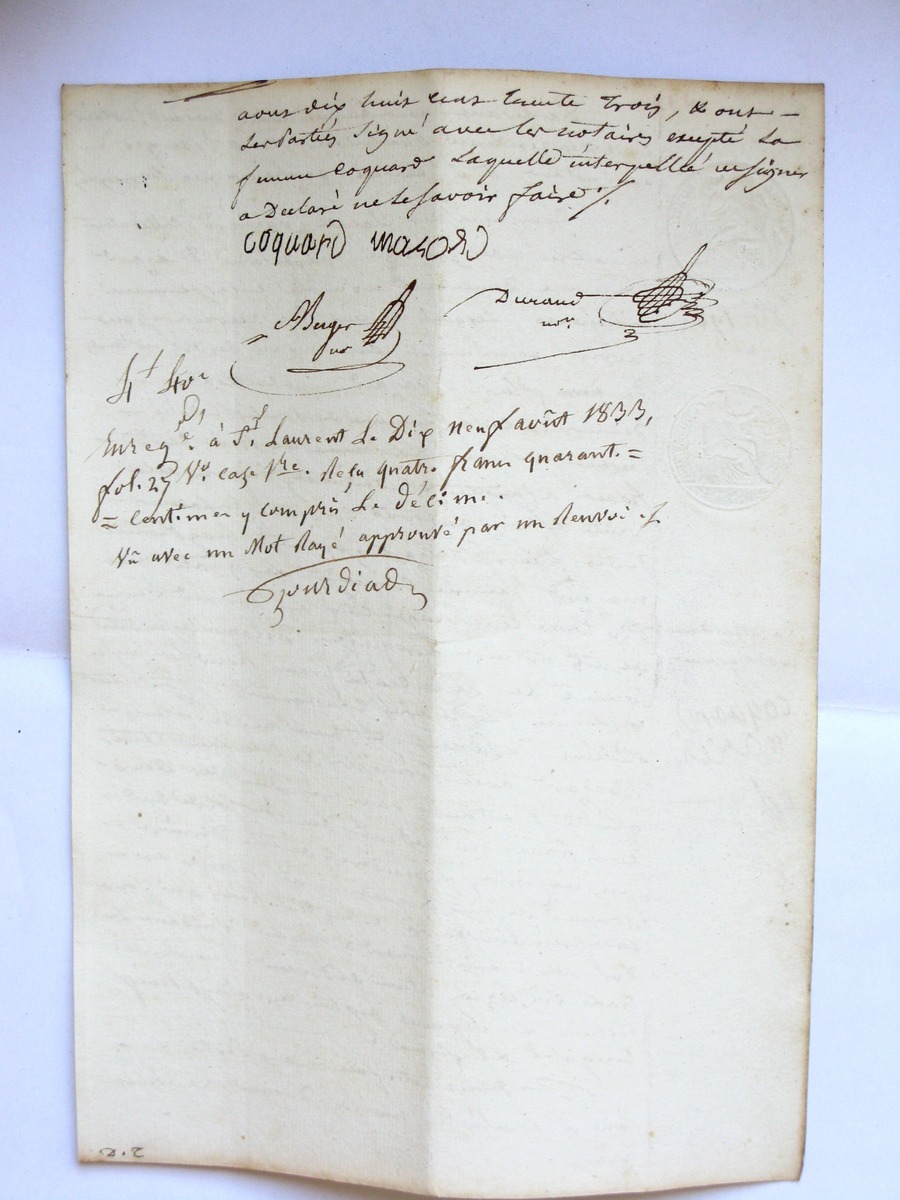 aout dix huit cent trente trois, & ont
les parties signé avec les notaires excepté la
femme Coquard laquelle interpellé de signer
a Declaré ne le savoir faire ./.
coquard
ABerger
nre
Durand
nore
4f 40c
Enregé à St Laurent Le Dix neuf août 1833,
fol. 27 Vo. case 1re. Reçu quatre francs quarante =
= centimes y compris Le décime.
Vu avec un Mot Rayé approuvé par un Renvoi ./.
Gourdiad